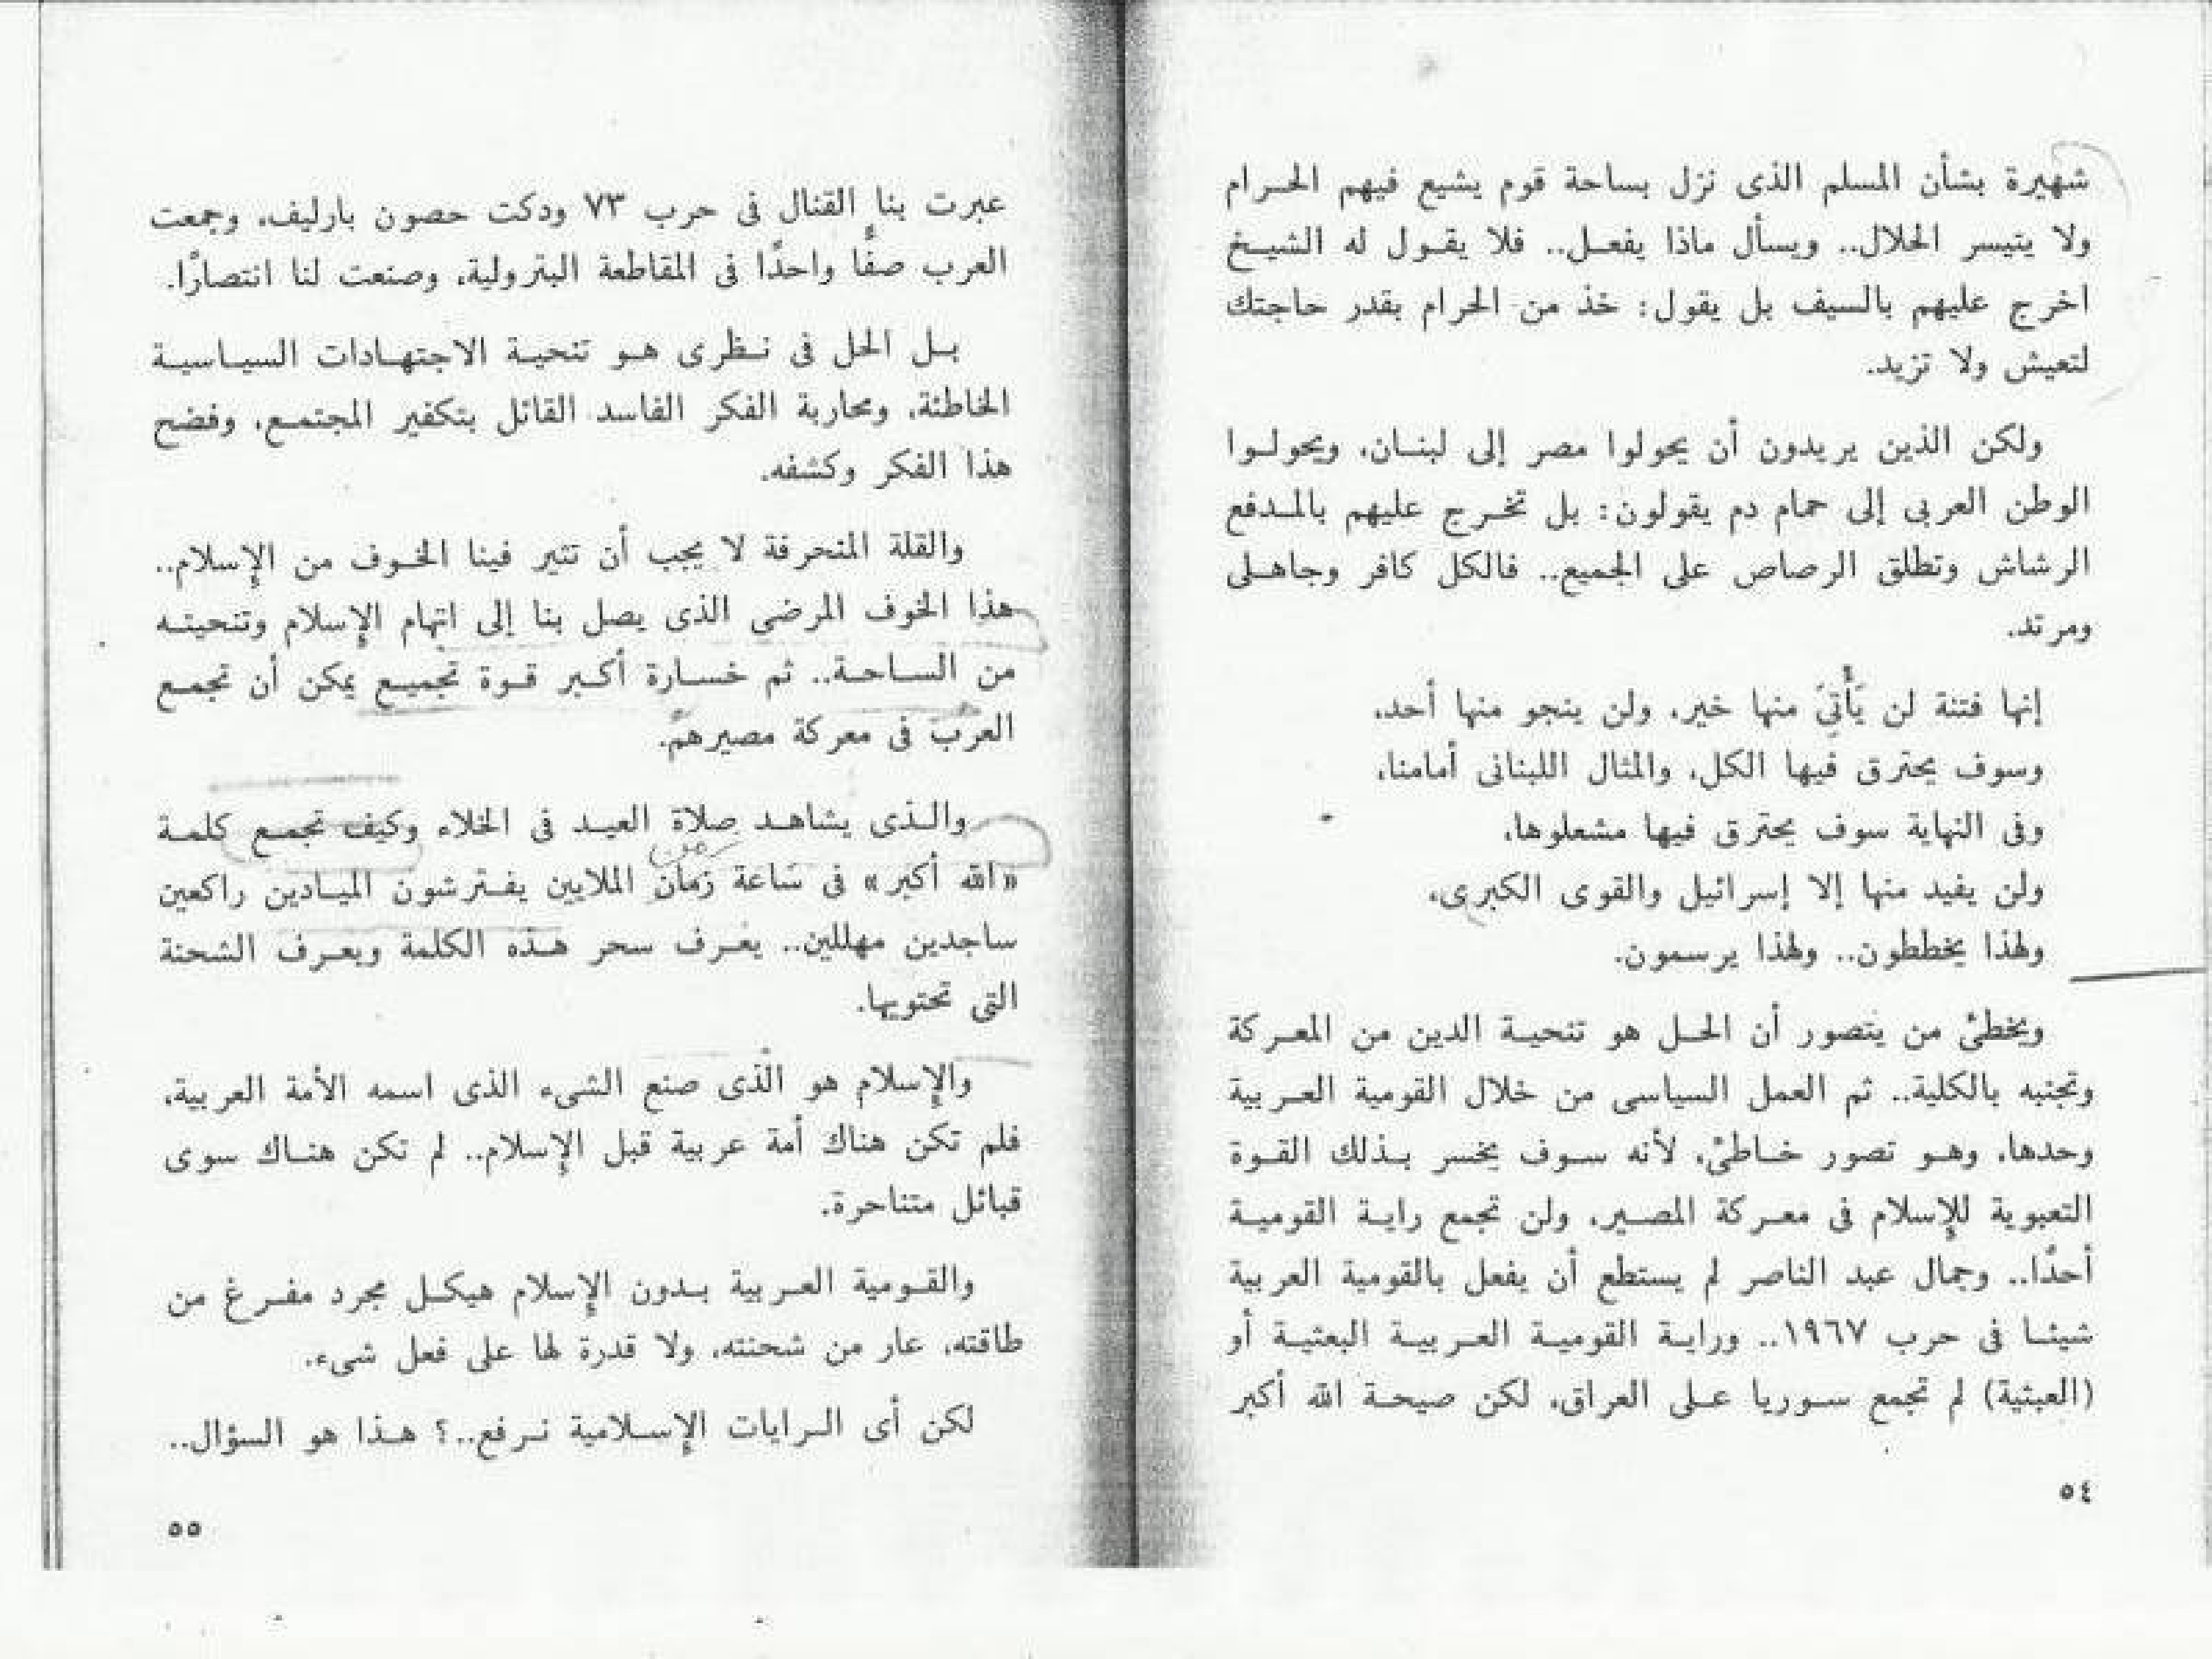 شهيرة بشأن المسلم الذى نزل بساحة قوم يشيع فيهم الحرام
ولا يتيسر الحلال.. ويسأل ماذا يفعل.. فلا يقول له الشيخ
اخرج عليهم بالسيف بل يقول: خذ من الحرام بقدر حاجتك
لتعيش ولا تزيد.
ولكن الذين يريدون أن يحولوا مصر إلى لبنان، ويحولوا
الوطن العربى إلى حمام دم يقولون: بل تخرج عليهم بالمدفع
الرشاش وتطلق الرصاص على الجميع.. فالكل كافر وجاهلى
ومرتد.
إنها فتنة لن يَأْتِىَ منها خير، ولن ينجو منها أحد،
وسوف يحترق فيها الكل، والمثال اللبنانى أمامنا،
وفى النهاية سوف يحترق فيها مشعلوها،
ولن يفيد منها إلا إسرائيل والقوى الكبرى،
ولهذا يخططون.. ولهذا يرسمون.
ويخطئ من يتصور أن الحل هو تنحية الدين من المعركة
وتجنبه بالكلية.. ثم العمل السياسى من خلال القومية العربية
وحدها، وهو تصور خاطئ، لأنه سوف يخسر بذلك القوة
التعبوية للإسلام فى معركة المصير، ولن تجمع راية القومية
أحدًا.. وجمال عبد الناصر لم يستطع أن يفعل بالقومية العربية
شيئا فى حرب ١٩٦٧.. وراية القومية العربية البعثية أو
(العبثية) لم تجمع سوريا على العراق، لكن صيحة الله أكبر
٥٤
عبرت بنا القنال فى حرب ٧٣ ودكت حصون بارليف، وجمعت
العرب صفًّا واحدًا فى المقاطعة البترولية، وصنعت لنا انتصارًا.
بل الحل فى نظرى هو تنحية الاجتهادات السياسية
الخاطئة، ومحاربة الفكر الفاسد القائل بتكفير المجتمع، وفضح
هذا الفكر وكشفه.
والقلة المنحرفة لا يجب أن تثير فينا الخوف من الإسلام..
هذا الخوف المرضى الذى يصل بنا إلى اتهام الإسلام وتنحيته
من الساحة.. ثم خسارة أكبر قوة تجميع يمكن أن تجمع
العرب فى معركة مصيرهم.
والذى يشاهد صلاة العيد فى الخلاء وكيف تجمع كلمة
«الله أكبر» فى ساعة زمان الملايين يفترشون الميادين راكعين
ساجدين مهللين.. يعرف سحر هذه الكلمة ويعرف الشحنة
التى تحتويها.
والإسلام هو الذى صنع الشىء الذى اسمه الأمة العربية،
فلم تكن هناك أمة عربية قبل الإسلام.. لم تكن هناك سوى
قبائل متناحرة.
والقومية العربية بدون الإسلام هيكل مجرد مفرغ من
طاقته، عار من شحنته، ولا قدرة لها على فعل شىء.
لكن أى الرايات الإسلامية نرفع..؟ هذا هو السؤال..
٥٥